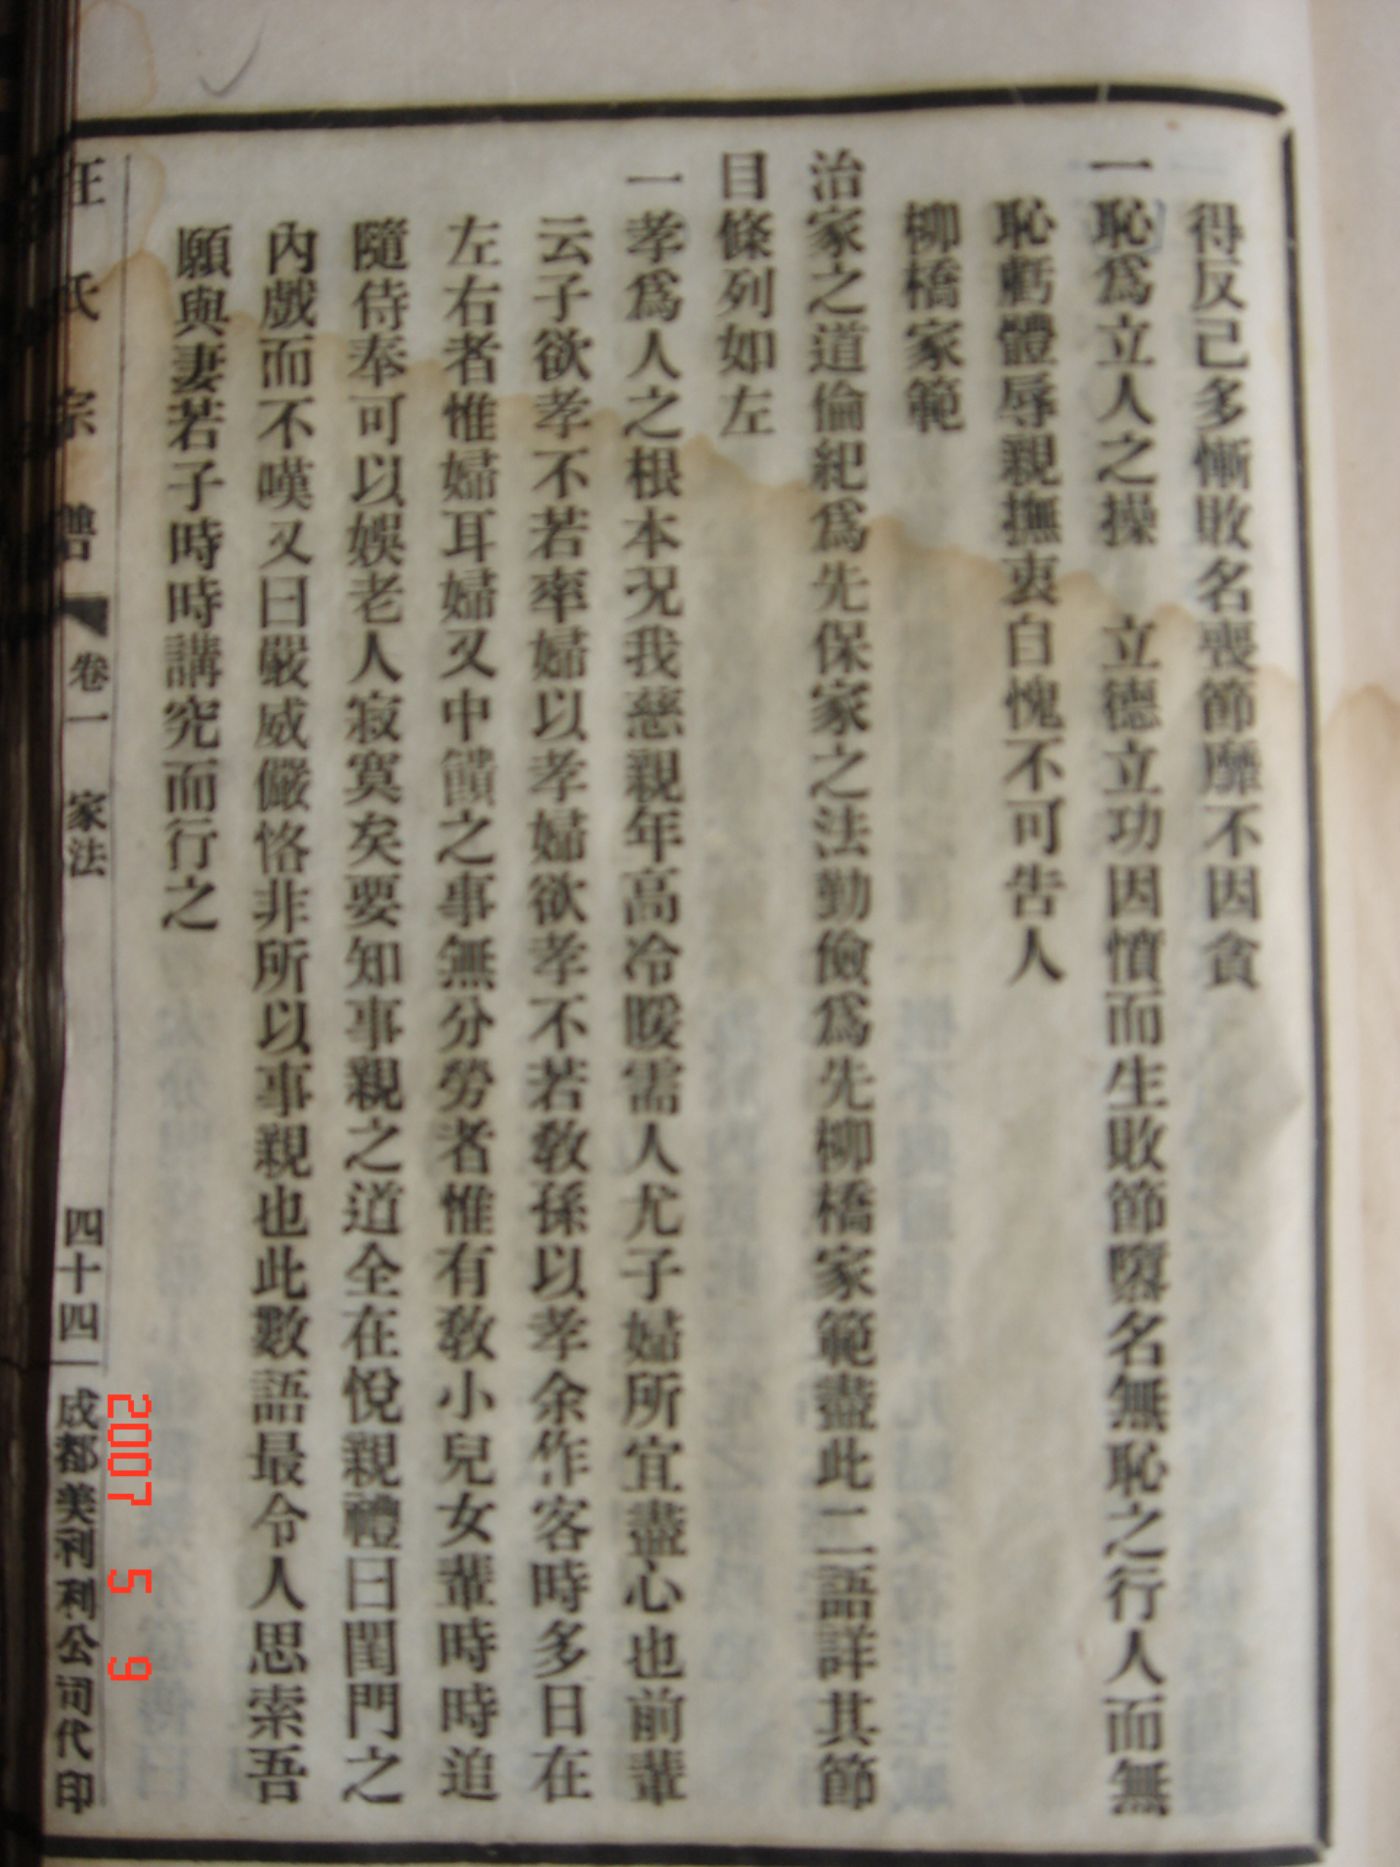 得反己多慚敗名喪節靡不因貪
一恥爲立人之操 立德立功因憤而生敗節隳名無恥之行人而無
恥虧體辱親撫衷自愧不可告人
柳橋家範
治家之道倫紀爲先保家之法勤儉爲先柳橋家範盡此二語詳其節
目條列如左
一孝爲人之根本況我慈親年高冷暖需人尤子婦所宜盡心也前輩
云子欲孝不若率婦以孝婦欲孝不若敎孫以孝余作客時多日在
左右者惟婦耳婦又中饋之事無分勞者惟有敎小兒女輩時時追
隨侍奉可以娛老人寂寞矣要知事親之道全在悅親禮曰閨門之
內戲而不嘆又曰嚴威儼恪非所以事親也此數語最令人思索吾
願與妻若子時時講究而行之
汪氏宗譜 卷一 家法 四十四 成都美利利公司代印
2007 5 9